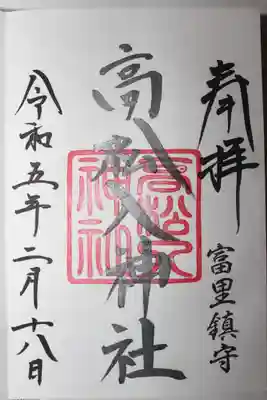 奉拝
富里鎮守
高松入神社
高松入
神社
令和五年二月十八日